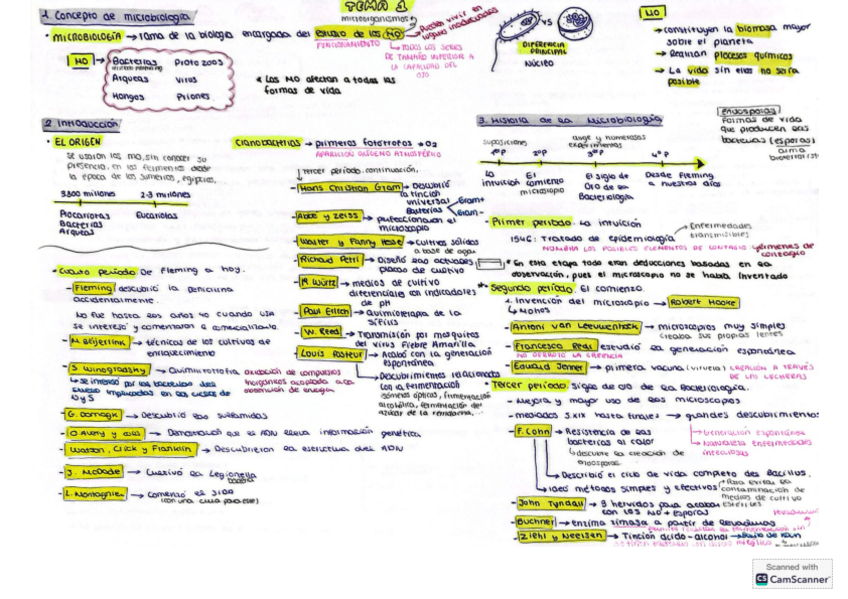 TEMA 1
1. Concepto de microbiología
microorganismos
MICROBIOLOGÍA → rama de la biología encargada del estudio de los MO
FUNCIONAMIENTO
Pueden vivir en
lugares insospechados
→ TODOS LOS SERES
DE TAMAÑO INFERIOR A
LA CAPACIDAD DEL
OJO
MO →
Bacterias Protozoos
Arqueas Virus
Hongos Priones
* Los MO afectan a todas las
formas de vida
VS
DIFERENCIA
PRINCIPAL
NÚCLEO
MO
→ constituyen la biomasa mayor
sobre el planeta
→ Realizan procesos químicos
→ La vida sin ellos no sería
posible
2 Introducción
• EL ORIGEN
Se usaron los mo, sin conocer su
presencia, en los fermentos desde
la época de los sumerios, egipcios,
3800 millones 2-3 millones
Procariotas Eucariotas
Bacterias
Arqueas
Cianobacterias → primeros fotótrofos → O2
APARICIÓN OXÍGENO ATMOSFÉRICO
tercer período. continuación,
- Hans Christian Gram → Descubrió
la tinción
universal
Bacterias
Gram+
Gram-
- Abbe y Zeiss → perfeccionan el
microscopio
- Walter y Fanny Hesse → cultivos sólidos
a base de agar
- Richard Petri → Diseñó las actuales
placas de cultivo
- M. Würtz → medios de cultivo
diferenciales con indicadores
de pH
- Paul Erlich → Quimioterapia de la
sífilis
- W. Reed → Transmisión por mosquitos
del virus Fiebre Amarilla
- Louis Pasteur → Acabó con la generación
espontánea
→ Descubrimientos relacionados
con la fermentación
isómeros ópticos, fermentación
alcohólica, fermentación del
azúcar de la remolacha,...
• Cuarto período. De Fleming a hoy.
- Fleming descubrió la penicilina
accidentalmente.
No fue hasta los años 40 cuando USA
se interesó y comenzaron a comercializarla.
- M. Beijerlink → técnicas de los cultivos de
enriquecimiento
- S. Winogradsky → Quimiolitotrofia
oxidación de compuestos
inorgánicos acoplada a la
obtención de energía
→ se interesó por las bacterias del
suelo implicadas en los ciclos de
N y S
- G. Domagk → Descubrió las sulfamidas
- O Avery y cols → Demostración que es ADN lleva información genética
- Watson, Crick y Franklin → Descubrieron la estructura del ADN
- J. McDade → Cultivó la Legionella
bacteria
- L. Montagnier → Comenzó el SIDA
3. Historia de la Microbiología
suposiciones
auge y numerosos
experimentos
1ºP 2ºP 3ºP 4ºP
La
intuición
El
comienzo
microscopio
El siglo de
Oro de la
Bacteriología
Desde Fleming
a nuestros días
endosporas
Formas de vida
que producen las
bacterias (esporas)
arma
bioterrorista
- Primer período. La intuición
Enfermedades
transmisibles
1546: Tratado de epidemiología
NOMBRA LOS POSIBLES ELEMENTOS DE CONTAGIO
gérmenes de
contagio
* En esta etapa todo eran deducciones basadas en la
observación, pues el microscopio no se había inventado
* Segundo período. El comienzo.
1. Invención del microscopio → Robert Hooke
→ Mohos
- Antoni van Leeuwenhoek → microscopios muy simples
creaba sus propias lentes
- Francesco Redi estudió la generación espontánea
NO DERROTÓ LA CREENCIA
- Edward Jenner → primera vacuna (viruela) CREACIÓN A TRAVÉS
DE LAS LECHERAS
• Tercer período. Siglo de oro de la Bacteriología.
- Mejora y mayor uso de los microscopios
- mediados S.XIX hasta finales → grandes descubrimientos:
→ Generación espontánea
→ Naturaleza enfermedades
infecciosas
- F. Cohn → Resistencia de las
bacterias al calor
→ descubre la creación de
endosporas
→ Describió el ciclo de vida completo del Bacillus,
→ ideó métodos simples y efectivos
Para evitar la
contaminación de
medios de cultivo
estériles.
- John Tyndall → 3 hervidos para acabar
con los MO + Esporas
- Buchner → enzima zimasa a partir de levaduras
- Ziehl y Neelsen → Tinción ácido-alcohol → Bacilo de Koch
Scanned with
CS CamScanner